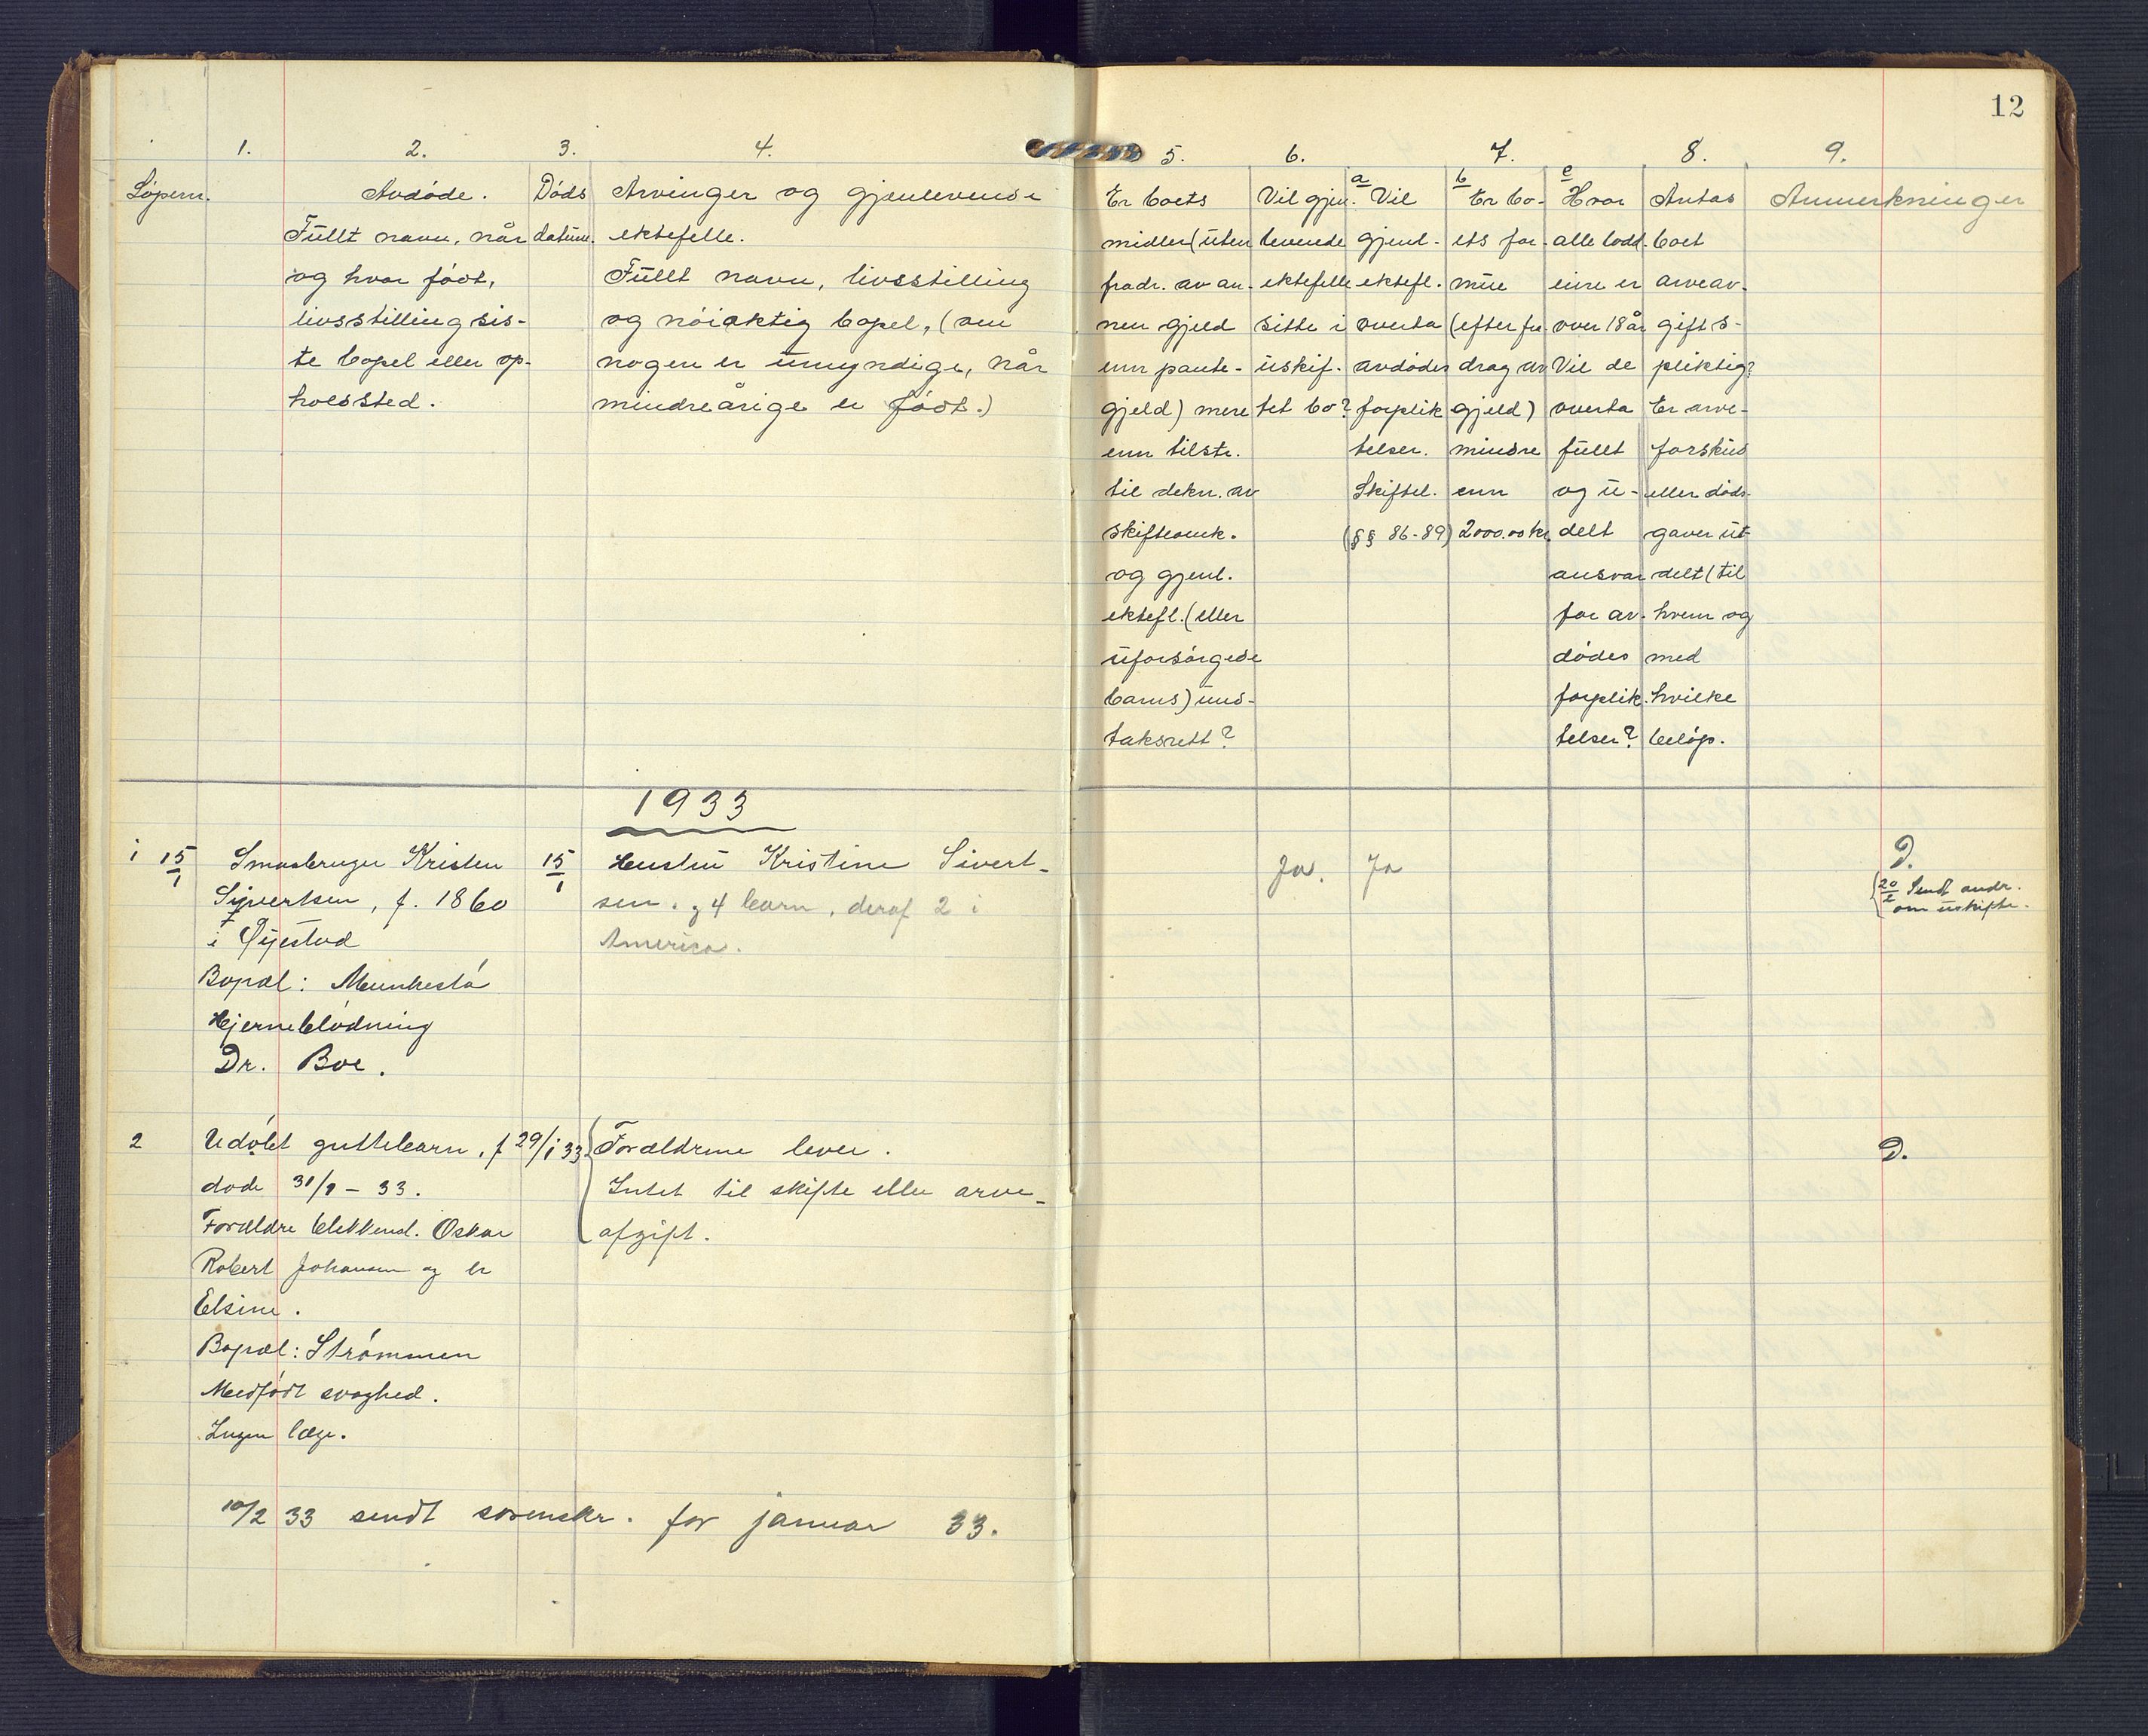 12
1. 2. 3. 4. 5. 6. 7. 8. 9.
Löpenr.
Avdöde.
Fullt navn, når
og hvor född,
livsstilling sis-
te bopel eller op-
holdssted.
Döds
datum.
Arvinger og gjenlevende
ektefelle.
Fullt navn, livsstilling
og nöiaktig bopel, (om
nogen er umyndige, når
mindreårige er född.)
Er boets
midler (uten
fradr. av an-
nen gjeld
enn pante-
gjeld) mere
enn tilstr.
til dekn. av
skifteomk.
og gjenl.
ektefl. (eller
uforsörgede
barns) und-
taksrett?
Vil gjen-
levende
ektefelle
sitte i
uskif-
tet bo?
a
Vil
gjenl.
ektefl.
overta
avdödes
forplik
telser.
Skiftel.
(§§ 86-89)
b
Er bo-
ets for-
mue
(efter fra
drag av
gjeld)
mindre
enn
2000.00 kr.
c
Hvor
alle lodd-
eiere er
over 18 år
Vil de
overta
fullt
og u-
delt
ansvar
for av-
dödes
forplik-
telser?
Antas
boet
arveav-
gifts-
pliktig?
Er arve-
forskud
eller döds-
gaver ut-
delt (til
hvem og
med
hvilke
belöp.
Anmerkninger
1933
1 15/1 Smaabruger Kristen
Sivertsen, f. 1860
i Øyestad
Bopæl: Munkestö
Hjerneblödning
Dr. Boe.
15/1
Hustru Kristine Sivert-
sen. og 4 barn, deraf 2 i
America.
Ja. Ja
D.
20/2 Sendt andr.
om uskifte.
2 Udöbt guttebarn, f 29/1 33
döde 31/1 - 33.
Forældre blikkensl. Oskar
Robert Johansen og
Elsine.
Bopæl: Strömmen
Medfödt svaghed.
Ingen læge.
Forældrene lever.
Intet til skifte eller arve-
afgift.
D.
10/2 33 sendt sorenskr. for januar 33.